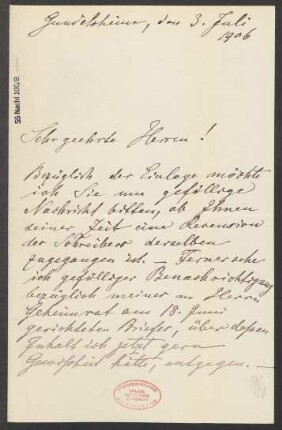 Gundelsheim, den 3. Juli
1906
Sehr geehrte Herren!
Bezüglich der Einlage möchte
ich Sie um gefällige
Nachricht bitten, ob Ihnen
seiner Zeit eine Rezension
des Schreibers derselben
zugegangen ist. — Ferner sehe
ich gefälliger Benachrichtigung
bezüglich meines an Herrn
Geheimrat am 18. Juni
gerichteten Briefes, über dessen
Inhalt ich jetzt gern
Gewißheit hätte, entgegen. —